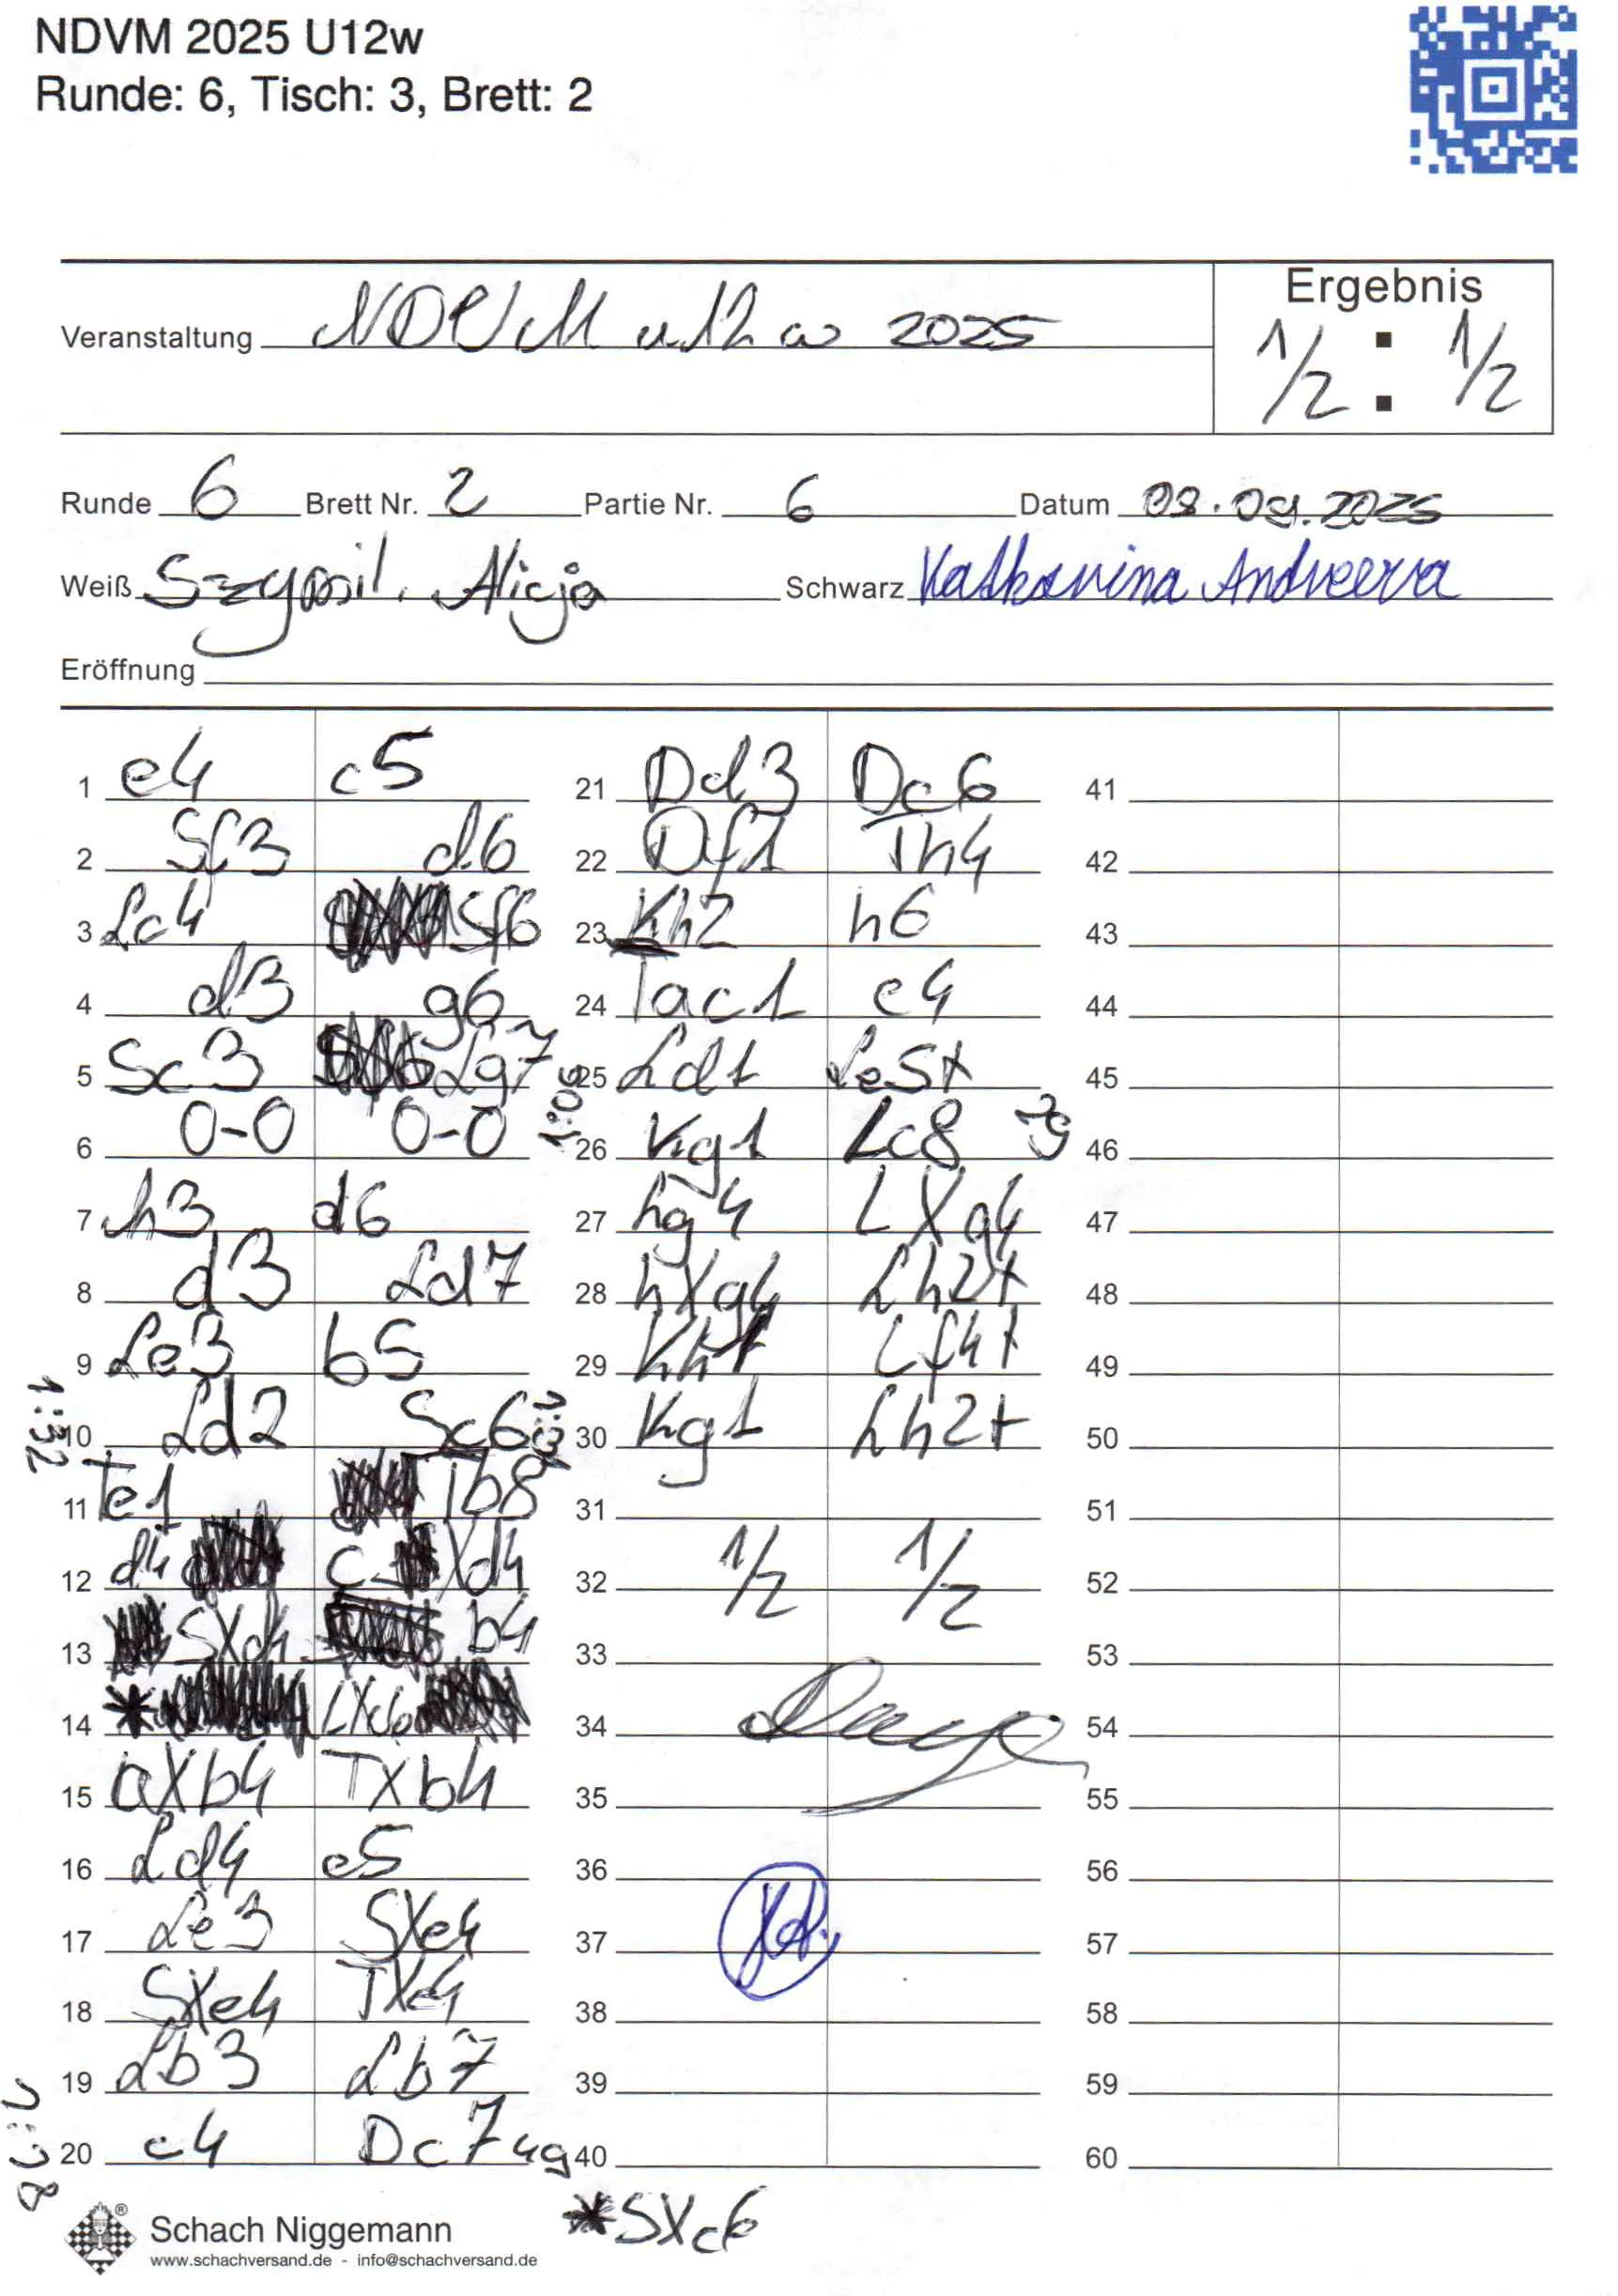 NDVM 2025 U12w
Runde: 6, Tisch: 3, Brett: 2
Veranstaltung NDVM u12 w 2025
Ergebnis
1/2 : 1/2
Runde 6 Brett Nr. 2 Partie Nr. 6 Datum 09.2025
Weiß Alicja Schwarz Katharina Andreeva
Eröffnung
1 e4 c5 21 Dd3 Dc6 41
2 Sf3 d6 22 Df1 Th4 42
3 Lc4 Sf6 23 Kh2 h6 43
4 d3 g6 24 Tac1 e4 44
5 Sc3 Lg7 25 Ld1 Le5+ 45
1:06
6 0-0 0-0 26 Kg1 Lc8 29 46
7 h3 d6 27 Lg4 LXg4 47
8 d3 Ld7 28 hXg4 Lh2+ 48
9 Le3 b5 29 Kh1 Lf4+ 49
1:32
10 Ld2 Sc6 30 Kg1 Lh2+ 50
11 Te1 Tb8 31 51
12 d4 cXd4 32 1/2 1/2 52
13 SXd4 b4 33 53
14 * LXc6 34 54
15 aXb4 TXb4 35 55
16 Ld4 e5 36 56
17 Le3 SXe4 37 57
18 SXe4 TXe4 38 58
19 Lb3 Lb7 39 59
20 c4 Dc7 49 40 60
*SXc6
Schach Niggemann
www.schachversand.de - info@schachversand.de